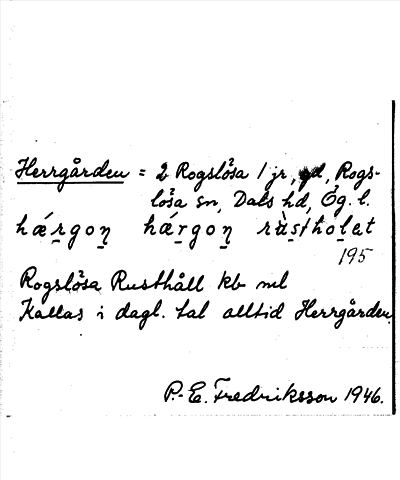 Herrgården = 2 Rogslösa 1 jr, gd, Rogs-
lösa sn, Dals hd, Ög. l.
hǽrgon hǽrgon rùstholet
195
Rogslösa Rusthåll kb ml
Kallas i dagl. tal alltid Herrgården.
P.-E. Fredriksson 1946.